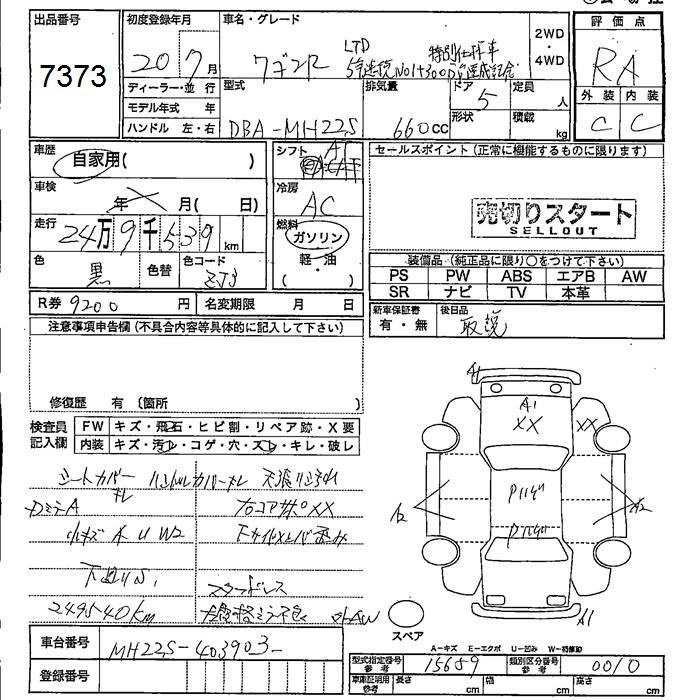 出品番号
7373
初度登録年月
20 7月
ディーラー・並行
モデル年式 年
ハンドル 左・右
車名・グレード
ワゴンR
LTD
特別仕様車
2WD
・
4WD
型式
DBA-MH22S
排気量
660cc
ドア
5
形状
定員
人
積載
kg
評価点
RA
外装 内装
C C
車歴
自家用( )
車検
年 月( 日)
走行
24万9千539km
色
黒
色替
色コード
ZJ3
シフト
AT
冷房
AC
燃料
ガソリン
軽・油
( )
セールスポイント(正常に機能するものに限ります)
売切りスタート
SELLOUT
装備品(純正品に限り○をつけて下さい)
PS PW ABS エアB AW
SR ナビ TV 本革
新車保証書
有・無
後日品
取説
R券 9200 円
名変期限 月 日
注意事項申告欄(不具合内容等具体的に記入して下さい)
修復歴 有 (箇所 )
検査員
記入欄
FW キズ・飛石・ヒビ割・リペア跡・X要
内装 キズ・汚レ・コゲ・穴・スレ・キレ・破レ
シートカバー
キレ
ハンドルカバーキレ
小キズ A U W2
下廻りS
スタッドレス
249540km
A1
A1
XX
XX
A2
A2
A1
スペア
A-キズ E-エクボ U-凹み W-補修跡
車台番号
MH22S-403903
登録番号
型式指定番号
参考
15659
類別区分番号
参考
0010
車庫証明用
参考
長さ cm
幅 cm
高さ cm